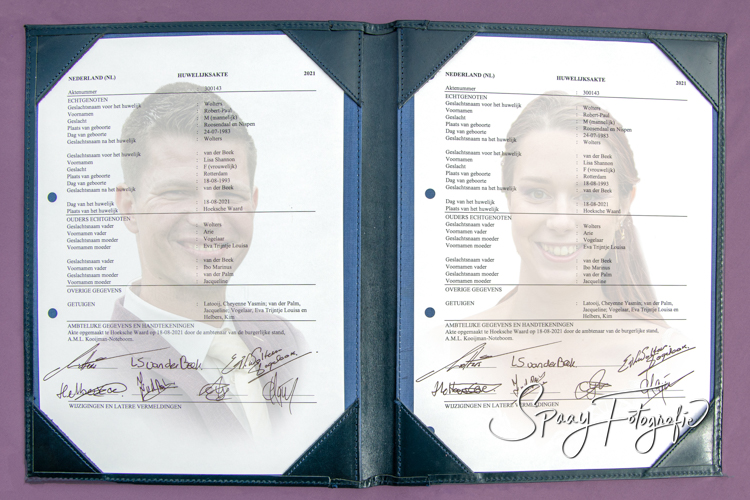 NEDERLAND (NL) HUWELIJKSAKTE 2021
Aktenummer : 300143
ECHTGENOTEN
Geslachtsnaam voor het huwelijk : Wolters
Voornamen : Robert-Paul
Geslacht : M (mannelijk)
Plaats van geboorte : Roosendaal en Nispen
Dag van geboorte : 24-07-1983
Geslachtsnaam na het huwelijk : Wolters
Geslachtsnaam voor het huwelijk : van der Beek
Voornamen : Lisa Shannon
Geslacht : F (vrouwelijk)
Plaats van geboorte : Rotterdam
Dag van geboorte : 18-08-1993
Geslachtsnaam na het huwelijk : van der Beek
Dag van het huwelijk : 18-08-2021
Plaats van het huwelijk : Hoeksche Waard
OUDERS ECHTGENOTEN
Geslachtsnaam vader : Wolters
Voornamen vader : Arie
Geslachtsnaam moeder : Vogelaar
Voornamen moeder : Eva Trijntje Louisa
Geslachtsnaam vader : van der Beek
Voornamen vader : Ibo Marinus
Geslachtsnaam moeder : van der Palm
Voornamen moeder : Jacqueline
OVERIGE GEGEVENS
GETUIGEN : Latooij, Cheyenne Yasmin; van der Palm,
Jacqueline; Vogelaar, Eva Trijntje Louisa en
Helbers, Kim
AMBTELIJKE GEGEVENS EN HANDTEKENINGEN
Akte opgemaakt te Hoeksche Waard op 18-08-2021 door de ambtenaar van de burgerlijke stand,
A.M.L. Kooijman-Noteboom.
LS van der Beek
WIJZIGINGEN EN LATERE VERMELDINGEN
NEDERLAND (NL) HUWELIJKSAKTE 2021
Aktenummer : 300143
ECHTGENOTEN
Geslachtsnaam voor het huwelijk : Wolters
Voornamen : Robert-Paul
Geslacht : M (mannelijk)
Plaats van geboorte : Roosendaal en Nispen
Dag van geboorte : 24-07-1983
Geslachtsnaam na het huwelijk : Wolters
Geslachtsnaam voor het huwelijk : van der Beek
Voornamen : Lisa Shannon
Geslacht : F (vrouwelijk)
Plaats van geboorte : Rotterdam
Dag van geboorte : 18-08-1993
Geslachtsnaam na het huwelijk : van der Beek
Dag van het huwelijk : 18-08-2021
Plaats van het huwelijk : Hoeksche Waard
OUDERS ECHTGENOTEN
Geslachtsnaam vader : Wolters
Voornamen vader : Arie
Geslachtsnaam moeder : Vogelaar
Voornamen moeder : Eva Trijntje Louisa
Geslachtsnaam vader : van der Beek
Voornamen vader : Ibo Marinus
Geslachtsnaam moeder : van der Palm
Voornamen moeder : Jacqueline
OVERIGE GEGEVENS
GETUIGEN : Latooij, Cheyenne Yasmin; van der Palm,
Jacqueline; Vogelaar, Eva Trijntje Louisa en
Helbers, Kim
AMBTELIJKE GEGEVENS EN HANDTEKENINGEN
Akte opgemaakt te Hoeksche Waard op 18-08-2021 door de ambtenaar van de burgerlijke stand,
A.M.L. Kooijman-Noteboom.
LS van der Beek
WIJZIGINGEN EN LATERE VERMELDINGEN
Spaay Fotografie